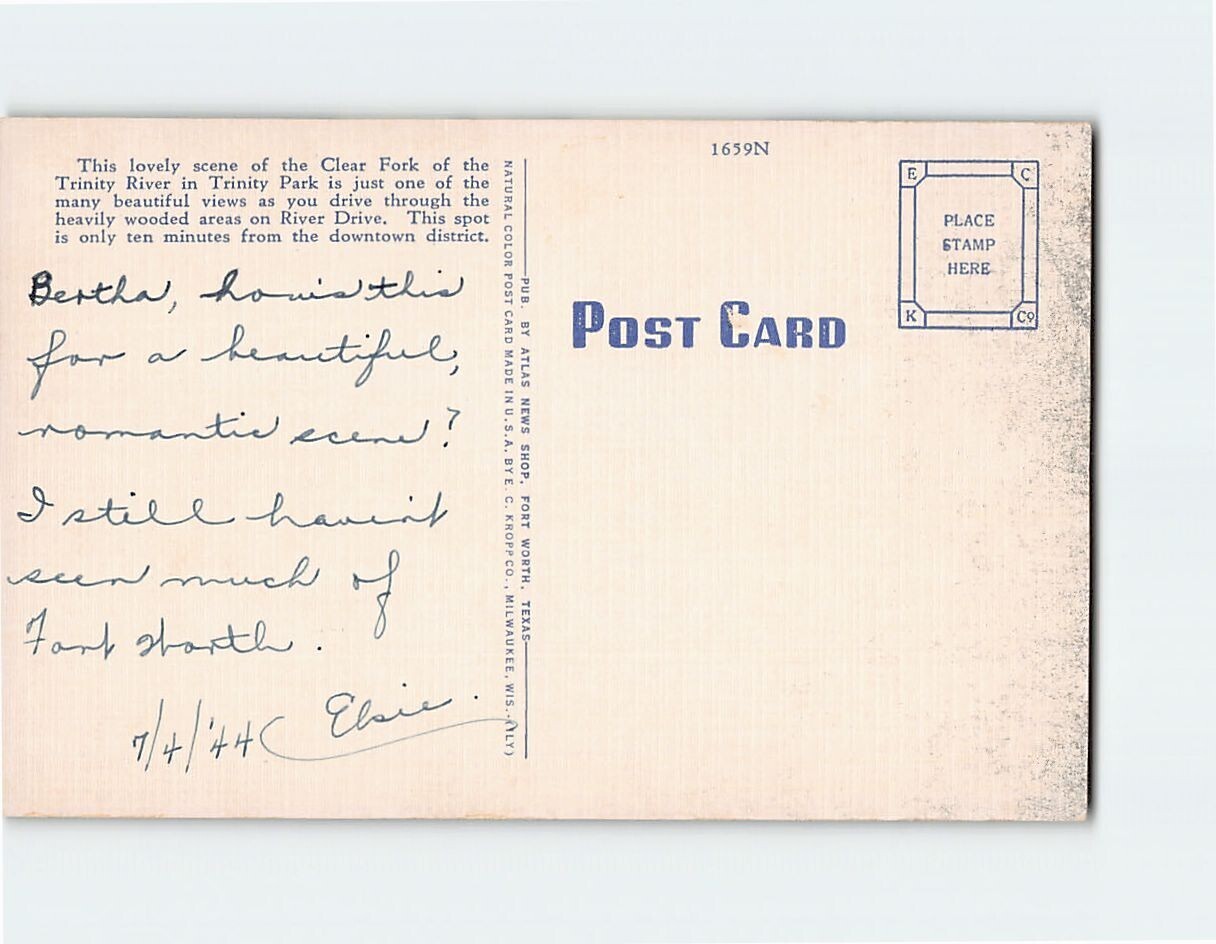 This lovely scene of the Clear Fork of the
Trinity River in Trinity Park is just one of the
many beautiful views as you drive through the
heavily wooded areas on River Drive. This spot
is only ten minutes from the downtown district.
Bertha, how is this
for a beautiful,
romantic scene?
I still haven't
seen much of
Fort Worth.
Elsie.
7/4/'44
NATURAL COLOR POST CARD MADE IN U.S.A. BY E. C. KROPP CO., MILWAUKEE, WIS.
PUB. BY ATLAS NEWS SHOP, FORT WORTH, TEXAS
1659N
POST CARD
E C
PLACE
STAMP
HERE
K Co